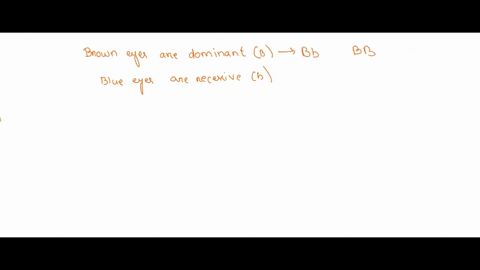 Brown eyes are dominant (B) → Bb BB
Blue eyes are recessive (b)